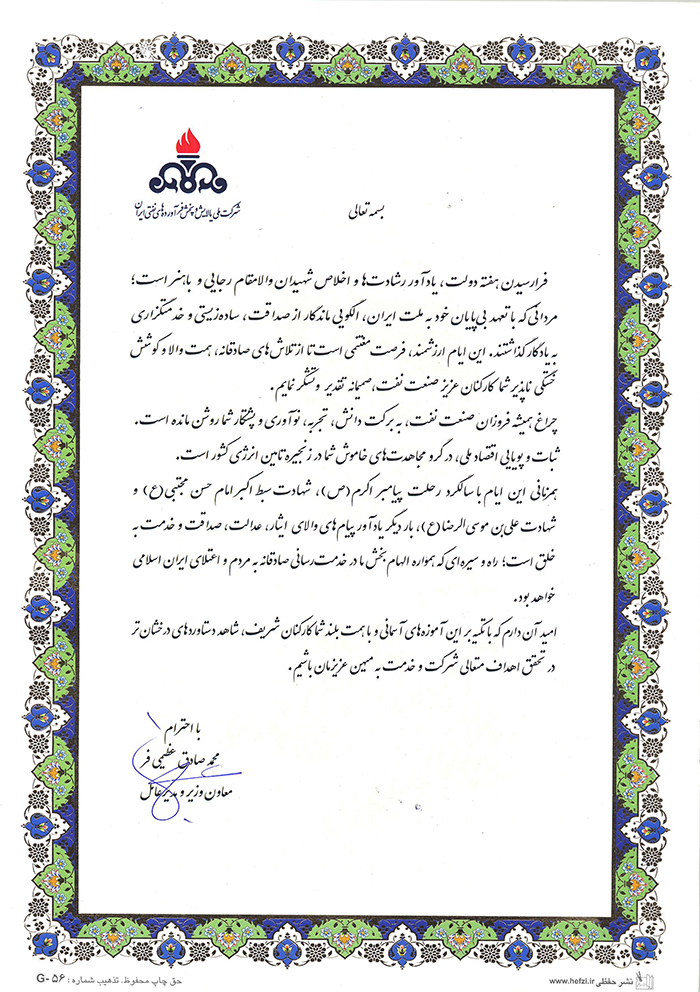 شرکت ملی پالایش و پخش فرآورده‌های نفتی ایران
بسمه تعالی
فرارسیدن هفته دولت، یادآور رشادت‌ها و اخلاص شهیدان والامقام رجایی و باهنر است؛
مردانی که با تعهد بی‌پایان خود به ملت ایران، الگویی ماندگار از صداقت، ساده‌زیستی و خدمتگزاری
به یادگار گذاشتند. این ایام ارزشمند، فرصت مغتنمی است تا از تلاش‌های صادقانه، همت والا و کوشش
خستگی ناپذیر شما کارکنان عزیز صنعت نفت، صمیمانه تقدیر و تشکر نمایم.
چراغ همیشه فروزان صنعت نفت، به برکت دانش، تجربه، نوآوری و پشتکار شما روشن مانده است.
ثبات و پویایی اقتصاد ملی، در گرو مجاهدت‌های خاموش شما در زنجیره تامین انرژی کشور است.
همزمانی این ایام با سالگرد رحلت پیامبر اکرم (ص)، شهادت سبط اکبر امام حسن مجتبی (ع) و
شهادت علی بن موسی الرضا (ع)، بار دیگر یادآور پیام‌های والای ایثار، عدالت، صداقت و خدمت به
خلق است؛ راه و سیره‌ای که همواره الهام بخش ما در خدمت رسانی صادقانه به مردم و اعتلای ایران اسلامی
خواهد بود.
امید آن دارم که با تکیه بر این آموزه‌های آسمانی و با همت بلند شما کارکنان شریف، شاهد دستاوردهای درخشان تر
در تحقق اهداف متعالی شرکت و خدمت به میهن عزیزمان باشیم.
با احترام
محمد صادق عظیمی فر
معاون وزیر و مدیرعامل
نشر حفظی www.hefzi.ir
حق چاپ محفوظ. تذهیب شماره : G-۵۶